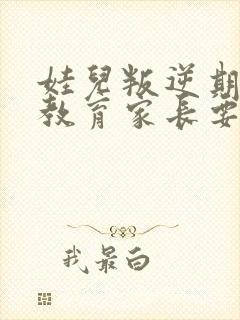 娃兒叛逆期
教育家長要
我最白